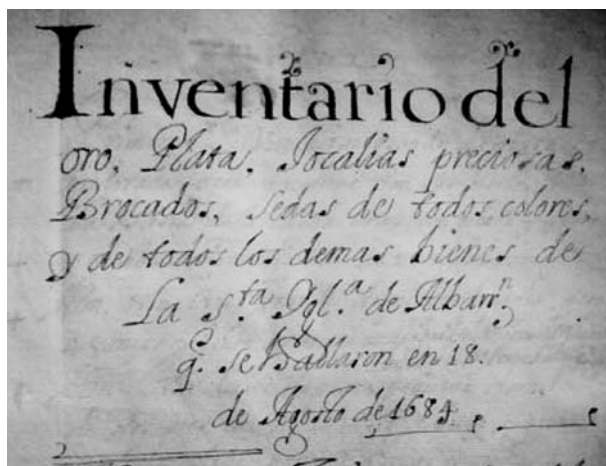 Inventario del
oro, Plata, Jocalias preciosas,
Brocados, sedas de todos colores,
y de todos los demas bienes de
La s.ta Ygl.a de Albarr.n
q. se hallaron en 18.
de Agosto de 1684